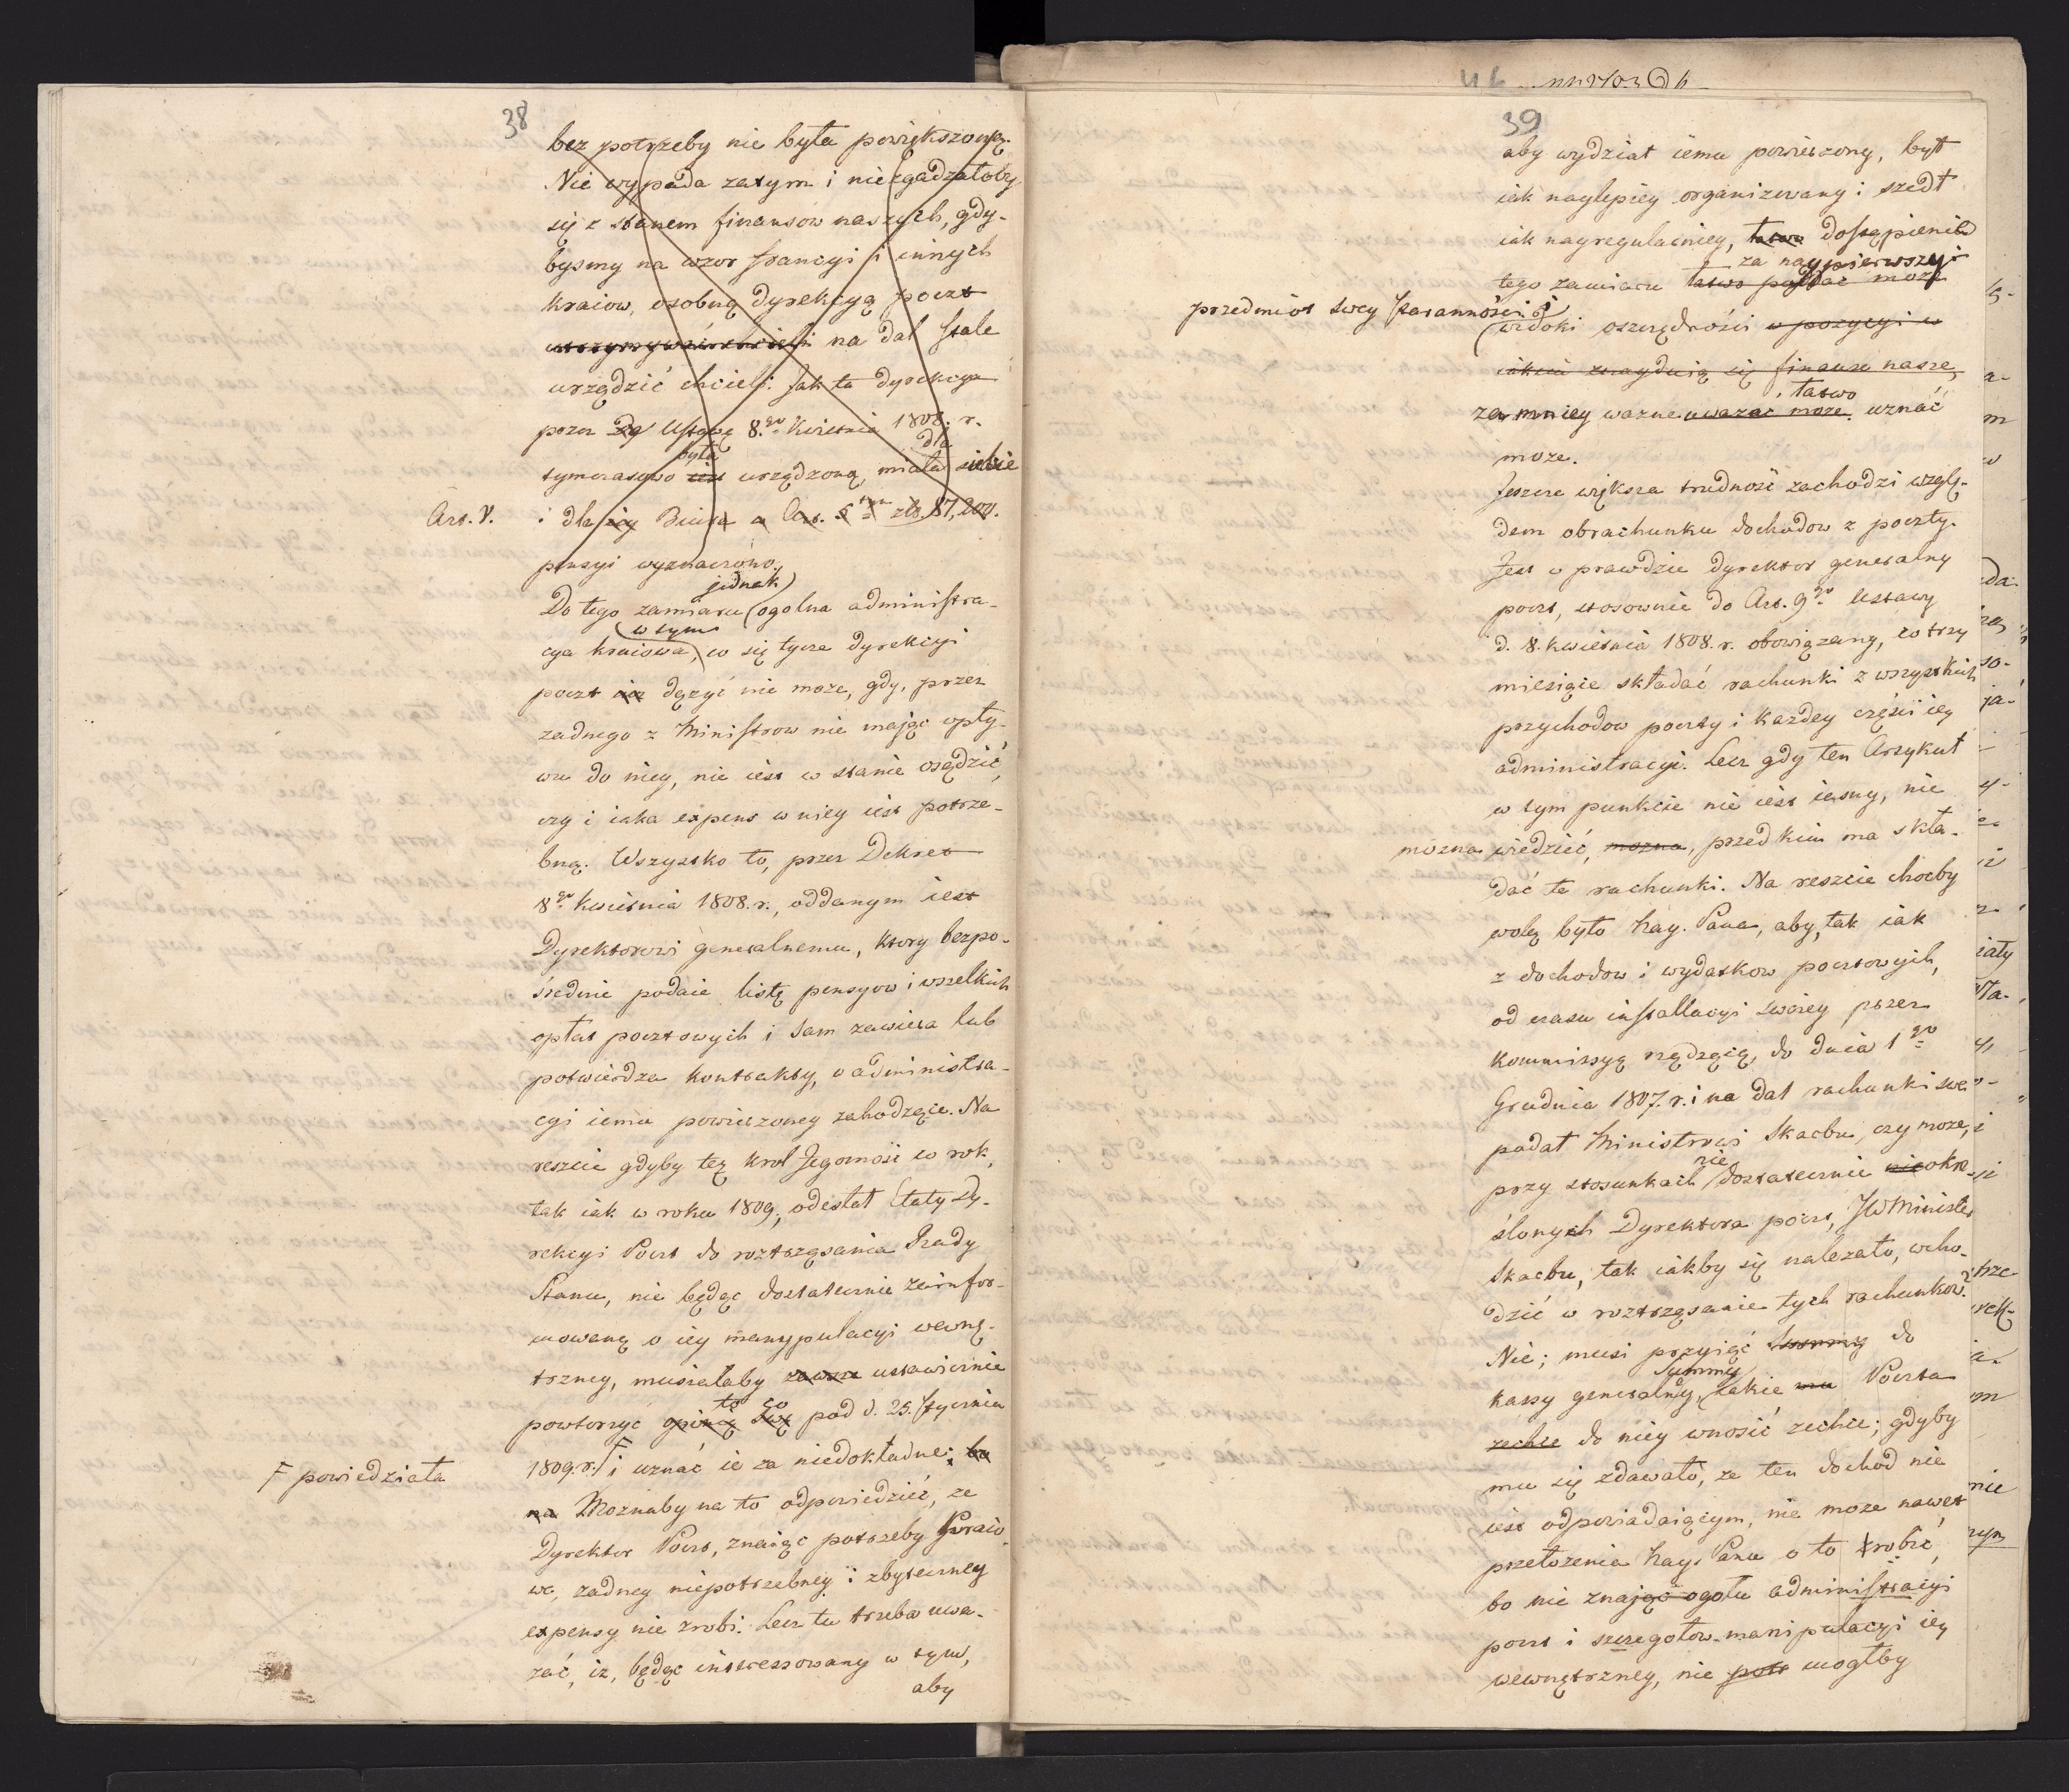 38
bez potrzeby nie była powiększoną.
Nie wypada zatym i nie zgadzałoby
się z stanem finansow naszych, gdy-
bysmy na wzor francyi i innych
kraiow, osobną dyrekcyą poczt
na dal stale
urządzić chcieli. Jak ta dyrekcya
przez Ustawę 8.go Kwietnia 1808. r.
była dla
tymczasowo urządzoną, miała siebie
Art. V. i dla Biura Art. 5 zło. 87,200.
pensyi wyznaczono.
jednak
Do tego zamiaru ogolna administra-
w tym
cya kraiowa, co się tycze dyrekcyi
poczt dążyć nie może, gdy, przez
żadnego z Ministrow nie mając wpły-
wu do niey, nie iest w stanie osądzić,
czy i iaka expens w niey iest potrze-
bną. Wszystko to, przez Dekret
8go Kwietnia 1808. r., oddanym iest
Dyrektorowi generalnemu, ktory bezpo-
średnie podaie listę pensyow i wszelkich
opłat pocztowych i sam zawiera lub
potwierdza kontrakty, w administra-
cyi iemu powierzoney zahodzące. Na
reszcie gdyby też Krol Jegomość co rok,
tak iak w roku 1809., odesłał Etaty Dy-
rekcyi Poczt do roztrząsania Rady
Stanu, nie będąc dostatecznie zainfor-
mowaną o iey manypulacyi wewnę-
trzney, musiałaby zawsze ustawicznie
to co
powtorzyć opinią swą pod d. 25. stycznia
1809. r. F i uznać ie za niedokładne;
F powiedziała
Moznaby na to odpowiedzieć, ze
Dyrektor Poczt, znając potrzeby kraio-
we, zadney niepotrzebney i zbyteczney
expensy nie zrobi. Lecz tu trzeba uwa-
żać, iz, będąc interessowany w tym,
aby
39
aby wydział iemu powierzony, był
iak naylepiey organizowany i szedł
iak nayregularniey, dostąpienie
za naypierwszy
tego zamiaru łatwo podać może
przedmiot swey staranności i
widoki oszczędności w pozycyi w
iakiej znayduią się finanse nasze,
łatwo
za mniey ważne uważać może uznać
moze.
Jeszcze większa trudność zachodzi wzglę-
dem obrachunku dochodow z poczty.
Jest w prawdzie Dyrektor generalny
poczt, stosownie do Art. 9go Ustawy
d. 8. kwietnia 1808. r. obowiązany, co trzy
miesiące składać rachunki z wszystkich
przychodow poczty i każdey części iey
administracyi. Lecz gdy ten Artykuł
w tym punkcie nie iest iasny, nie
można wiedzieć, można, przed kim ma skła-
dać te rachunki. Na reszcie choćby
wolą było Nay. Pana, aby, tak iak
z dochodow i wydatkow pocztowych,
od czasu installacyi swoiey przez
kommissyą rządzącą, do dnia 1go
Grudnia 1807. r. i na dal rachunki swe
podał Ministrowi Skarbu, czy może,
nie
przy stosunkach dostatecznie okre-
ślonych Dyrektora poczt, JW Minister
Skarbu, tak iakby się należało, wcho-
dzić w roztrząsanie tych rachunkow?
Nie; musi przyiąć Summy do
Summy
kassy generalney, iakie Poczta
zechce do niey wnosić zechce; gdyby
mu się zdawało, ze ten dochod nie
iest odpowiadaiącym, nie może nawet
przełożenia Nay. Panu o to zrobić,
bo nie znając ogołu administracyi
poczt i szczegołow manipulacyi iey
wewnętrzney, nie mogłby